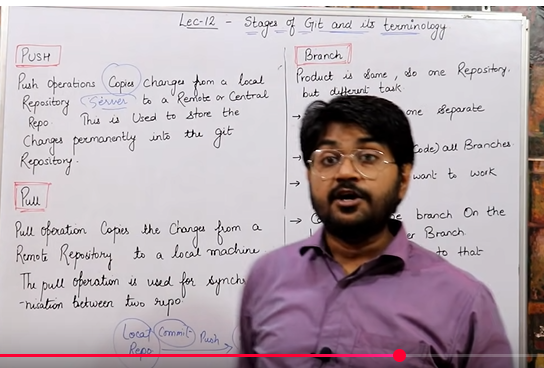 Lec-12 - Stages of Git and its terminology
PUSH
Push Operations Copies changes from a local
Repository (Server) to a Remote or Central
Repo. This is Used to store the
Changes permanently into the git
Repository.
Pull
Pull operation Copies the Changes from a
Remote Repository to a local machine
The pull operation is used for synch
-nisation between two repo.
Local Commit Push
Repo
Branch
Product is same, so one Repository.
but different task.
→ one Separate
→ Code) all Branches
→ want to work
→ branch On the
Branch
to that